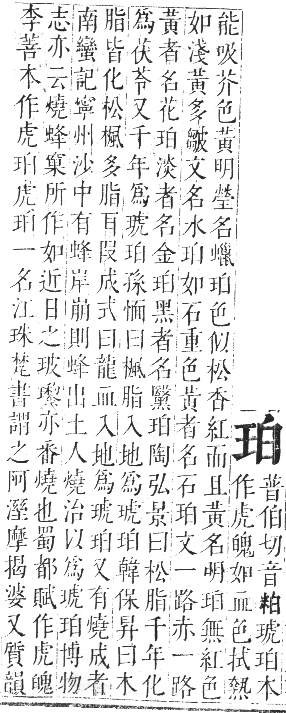 珀
普伯切音粕琥珀本
作虎魄如血色拭熱
能吸芥色黃明瑩名蠟珀色似松香紅而且黃名明珀無紅色
如淺黃多皺文名水珀如石重色黃者名石珀文一路赤一路
黃者名花珀淡者名金珀黑者名黳珀陶弘景曰松脂千年化
爲茯苓又千年爲琥珀孫愐曰楓脂入地爲琥珀韓保昇曰木
脂皆化松楓多脂耳叚成式曰龍血入地爲琥珀又有燒成者
南蠻記寧州沙中有蜂岸崩則蜂出土人燒治以爲琥珀博物
志亦云燒蜂窠所作如近日之玻瓈亦番燒也蜀都賦作虎魄
李善本作虎珀虎珀一名江珠梵書謂之阿溼摩揭婆又質韻